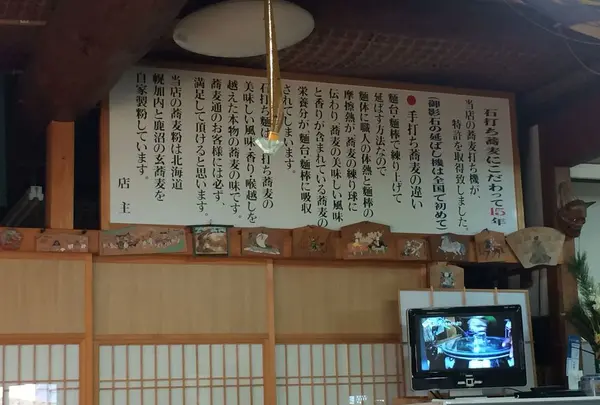 石打ち蕎麦にこだわって15年
当店の蕎麦打ち機が、
特許を取得致しました。
(御影石の延ばし機は全国で初めて)
●手打ち蕎麦の違い
麺台・麺棒で練り上げて
延ばす方法なので
麺体に職人の体熱と麺棒の
摩擦熱が、蕎麦の練り球に
伝わり、蕎麦の美味しい風味
と香りが含まれている蕎麦の
栄養分が、麺台・麺棒に吸収
されてしまいます。
石打ち麺は、手打ち蕎麦の
美味しい風味・香り・喉越しを
越えた本物の蕎麦の味です。
蕎麦通のお客様には必ず、
満足して頂けると思います。
当店の蕎麦粉は北海道
幌加内と鹿沼の玄蕎麦を
自家製粉しています。
店主